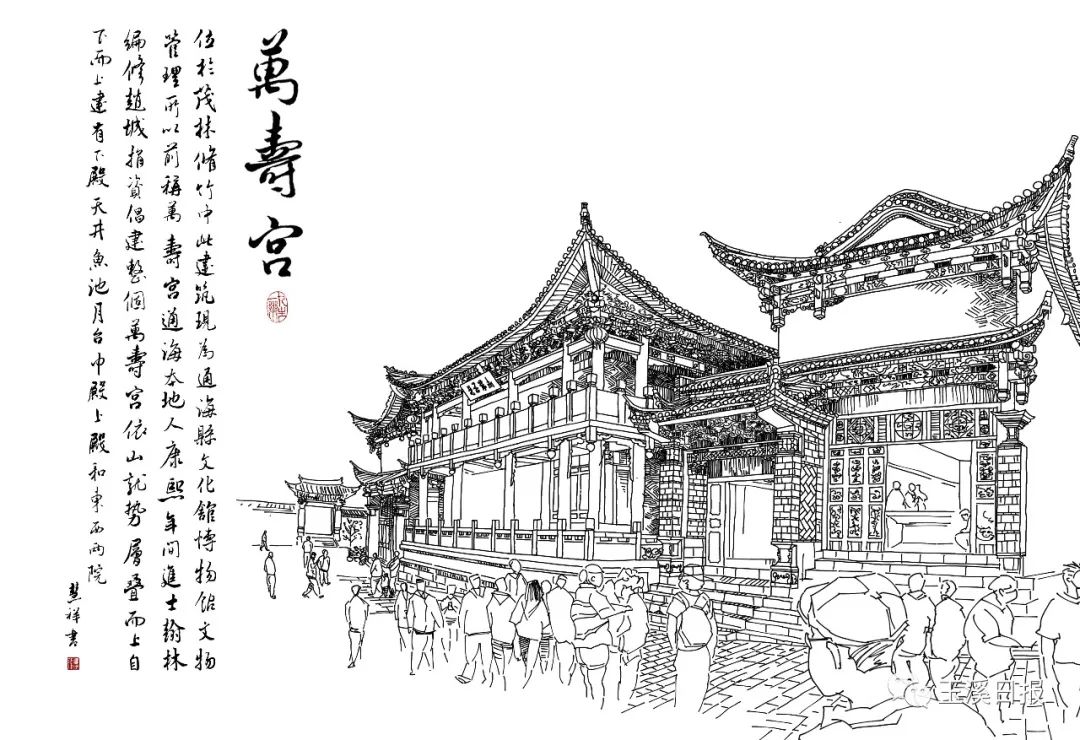 萬壽宮
位於茂林脩竹中此建筑現為通海縣文化館博物館文物
管理所以前稱萬壽宮通海本地人康熙年間進士翰林
編修趙城捐資倡建整個萬壽宮依山就勢層疊而上自
下而上建有下殿天井魚池月台中殿上殿和東西兩院
慧祥書
玉溪日报